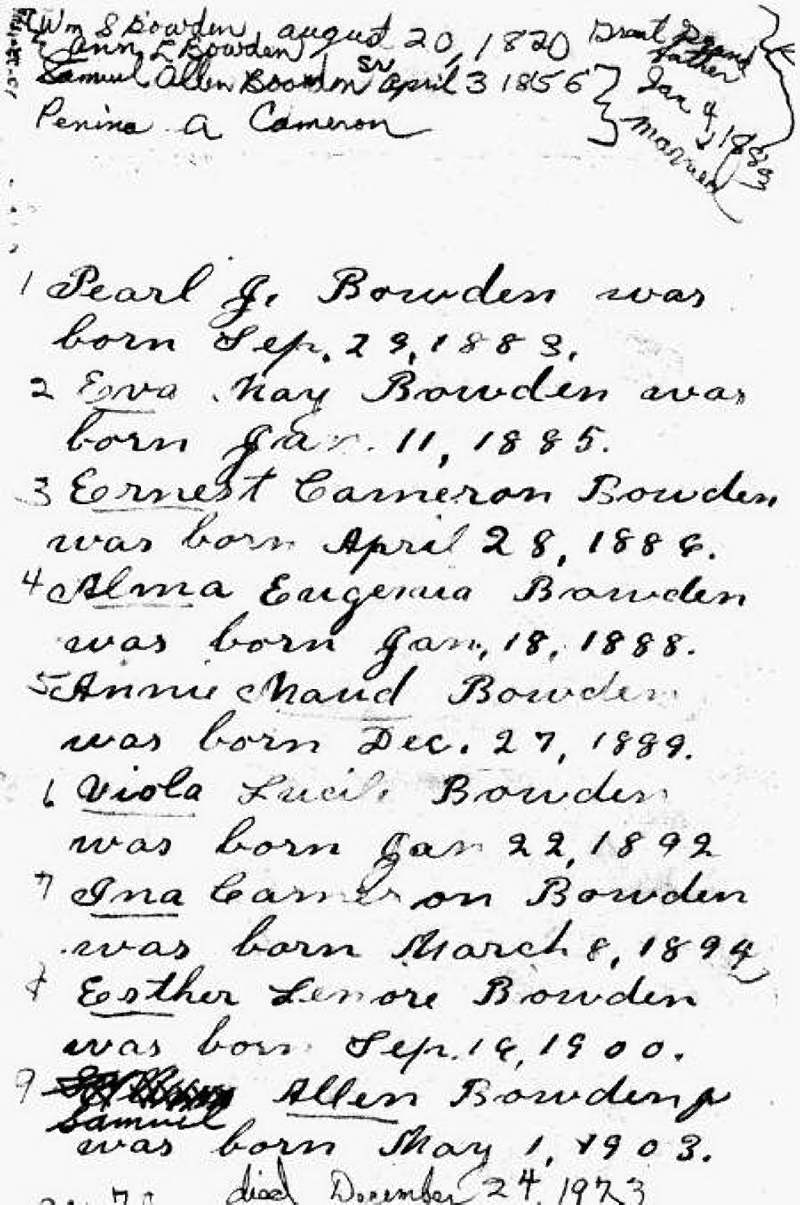 Wm S Bowden august 20, 1820 Great Grand father
Ann L Bowden
Samuel Allen Bowden Sr april 3 1856
Penina A Cameron
Jan 4, 1883
married
1 Pearl J. Bowden was
born Sep. 29, 1883.
2 Eva May Bowden was
born Jan. 11, 1885.
3 Ernest Cameron Bowden
was born April 28, 1886.
4 Alma Eugenia Bowden
was born Jan. 18, 1888.
5 Annie Maud Bowden
was born Dec. 27, 1889.
6 Viola Lucile Bowden
was born Jan 22, 1892
7 Ina Cameron Bowden
was born March 8, 1894
8 Esther Lenore Bowden
was born Sep. 16, 1900.
9 Samuel Allen Bowden Jr
was born May 1, 1903.
died December 24, 1973